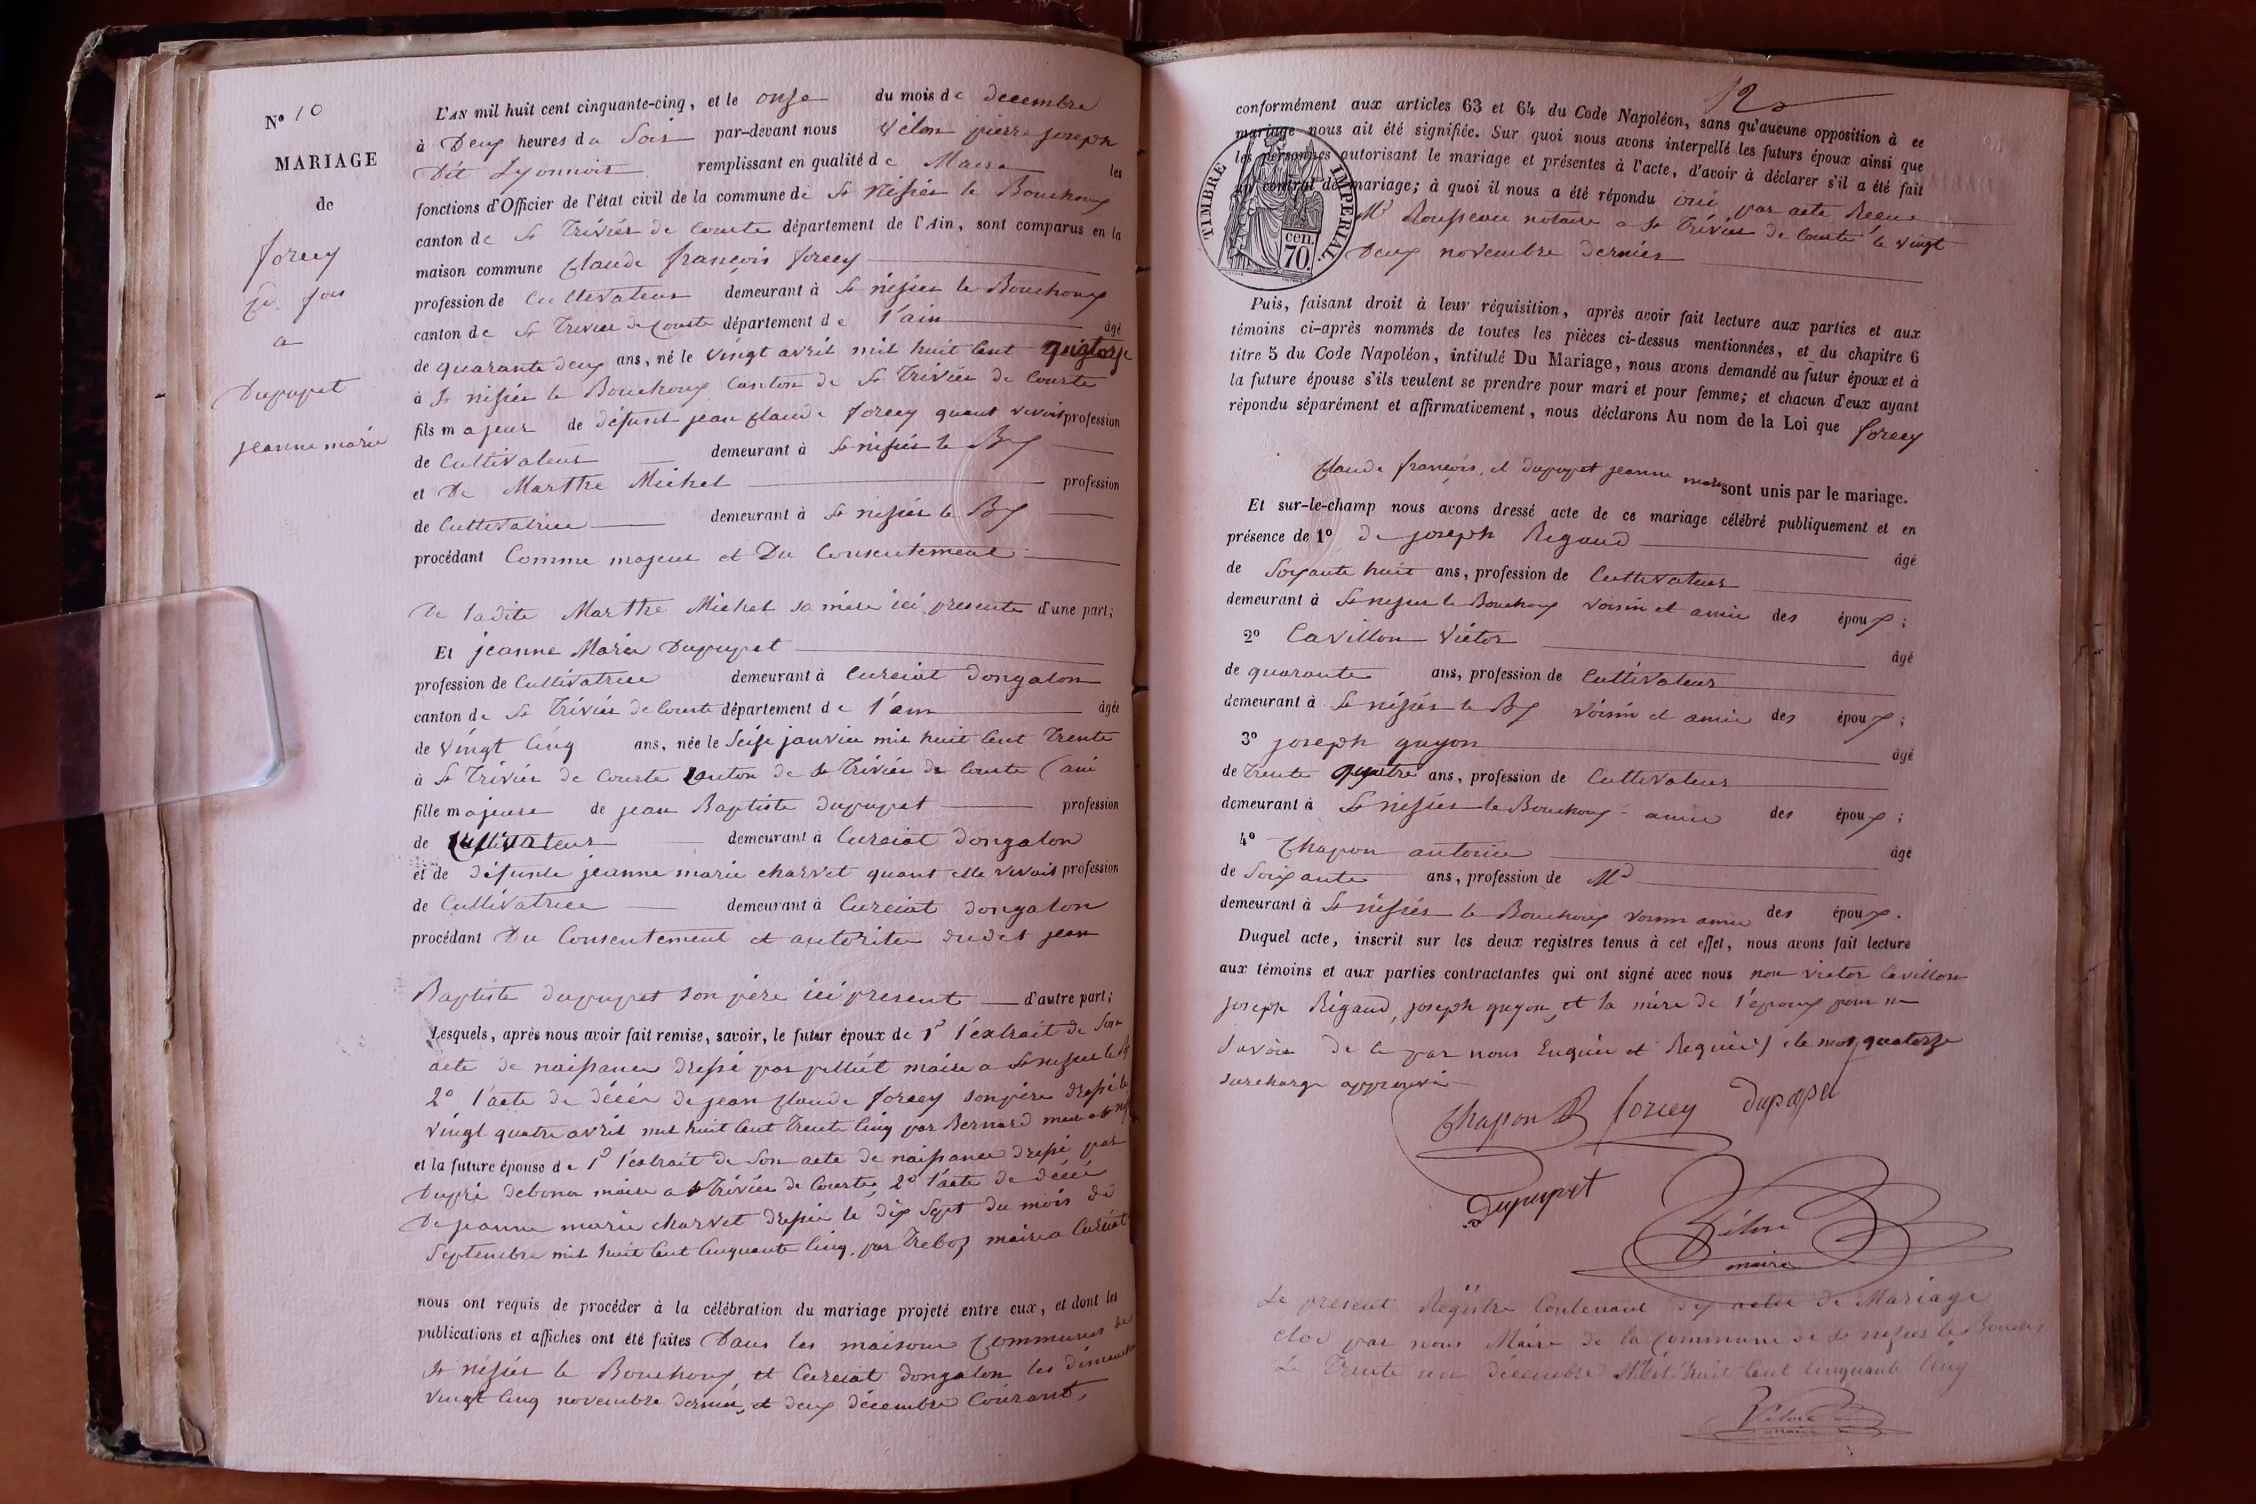 N° 10
MARIAGE
de
forey
Cl. fois
a
Dupupet
jeanne marie
L'AN mil huit cent cinquante-cinq, et le onse du mois de decembre
à Deux heures du Soir par-devant nous Vélon pierre joseph
Dit Lyonnois remplissant en qualité de Maire les
fonctions d'Officier de l'état civil de la commune de St Nisier le Bouchoux
canton de St Trivier de Courte département de l'Ain, sont comparus en la
maison commune Claude françois forey
profession de Cultivateur demeurant à St nisier le Bouchoux
canton de St Trivier de Courte département de l'ain âgé
de quarante deux ans, né le vingt avril mil huit Cent quatorze
à St nisier le Bouchoux Canton de St Trivier de Courte
fils majeur de défunt jean Claude forey quant vivoit profession
de Cultivateur demeurant à St nisier le Bx
et De Marthe Michel profession
de Cultivatrice demeurant à St nisier le Bx
procédant Comme majeur et Du Consentement
De ladite Marthe Michel sa mère ici presente d'une part;
Et jeanne Marie Dupupet
profession de Cultivatrice demeurant à Curciat dongalon
canton de St Trivier de Courte département de l'ain âgée
de vingt Cinq ans, née le Seise janvier mil huit Cent Trente
à St Trivier de Courte Canton de St Trivier de Courte (ain
fille majeure de jean Baptiste dupupet profession
de Cultivateur demeurant à Curciat Dongalon
et de défunte jeanne marie charvet quant elle vivoit profession
de Cultivatrice demeurant à Curciat dongalon
procédant Du Consentement et autorité dudit jean
Baptiste dupupet son père ici present d'autre part;
Lesquels, après nous avoir fait remise, savoir, le futur époux de 1° l'extrait de Son
acte de naissance dressé par maire a St nisier le Bx
2° l'acte de décés de jean Claude forey son père dressé le
vingt quatre avril mil huit Cent Trente Cinq par Bernard maire a St
et la future épouse de 1° l'extrait de Son acte de naissance dressé par
Dupré debona maire a St Trivier de Courte, 2° l'acte de décé
De jeanne marie charvet dressé le dix Sept du mois de
Septembre mil huit Cent Cinquante Cinq, par Treboz maire a Curciat
nous ont requis de procéder à la célébration du mariage projeté entre eux, et dont les
publications et affiches ont été faites Dans les maisons Communes de
St nisier le Bouchoux et Curciat dongalon les dimanches
vingt Cinq novembre dernier, et deux décembre Courant,
12
TIMBRE IMPERIAL.
cen.
70.
conformément aux articles 63 et 64 du Code Napoléon, sans qu'aucune opposition à ce
mariage nous ait été signifiée. Sur quoi nous avons interpellé les futurs époux ainsi que
les personnes autorisant le mariage et présentes à l'acte, d'avoir à déclarer s'il a été fait
un contrat de mariage; à quoi il nous a été répondu oui par acte Recue
Me Rousseau notaire a St Trivier de Courte le vingt
Deux novembre dernier
Puis, faisant droit à leur réquisition, après avoir fait lecture aux parties et aux
témoins ci-après nommés de toutes les pièces ci-dessus mentionnées, et du chapitre 6
titre 5 du Code Napoléon, intitulé Du Mariage, nous avons demandé au futur époux et à
la future épouse s'ils veulent se prendre pour mari et pour femme; et chacun d'eux ayant
répondu séparément et affirmativement, nous déclarons Au nom de la Loi que forey
Claude françois, et dupupet jeanne marie sont unis par le mariage.
Et sur-le-champ nous avons dressé acte de ce mariage célébré publiquement et en
présence de 1° de joseph Rigaud âgé
de Soixante huit ans, profession de Cultivateur
demeurant à St nisier le Bouchoux voisin et amie des époux;
2° Cavillon Victor âgé
de quarante ans, profession de Cultivateur
demeurant à St nisier le Bx voisin et amie des époux;
3° joseph guyon âgé
de Trente quatre ans, profession de Cultivateur
demeurant à St nisier le Bouchoux amie des époux;
4° Chapon antoine âgé
de Soixante ans, profession de Md
demeurant à St nisier le Bouchoux voisin amie des époux.
Duquel acte, inscrit sur les deux registres tenus à cet effet, nous avons fait lecture
aux témoins et aux parties contractantes qui ont signé avec nous non victor Cavillon
joseph Rigaud, joseph guyon, et la mère de l'époux pour ne
Savoir De ce par nous Enquis et Requis) le mot quatorze
surcharge approuvé
Chapon forey dupupet
Dupupet
Vélon
maire
Le present Registre Contenant dix actes de Mariage
clos par nous Maire de la Commune de St nisier le Bouchoux
Le Trente un décembre Mil huit Cent Cinquante Cinq
Vélon
maire